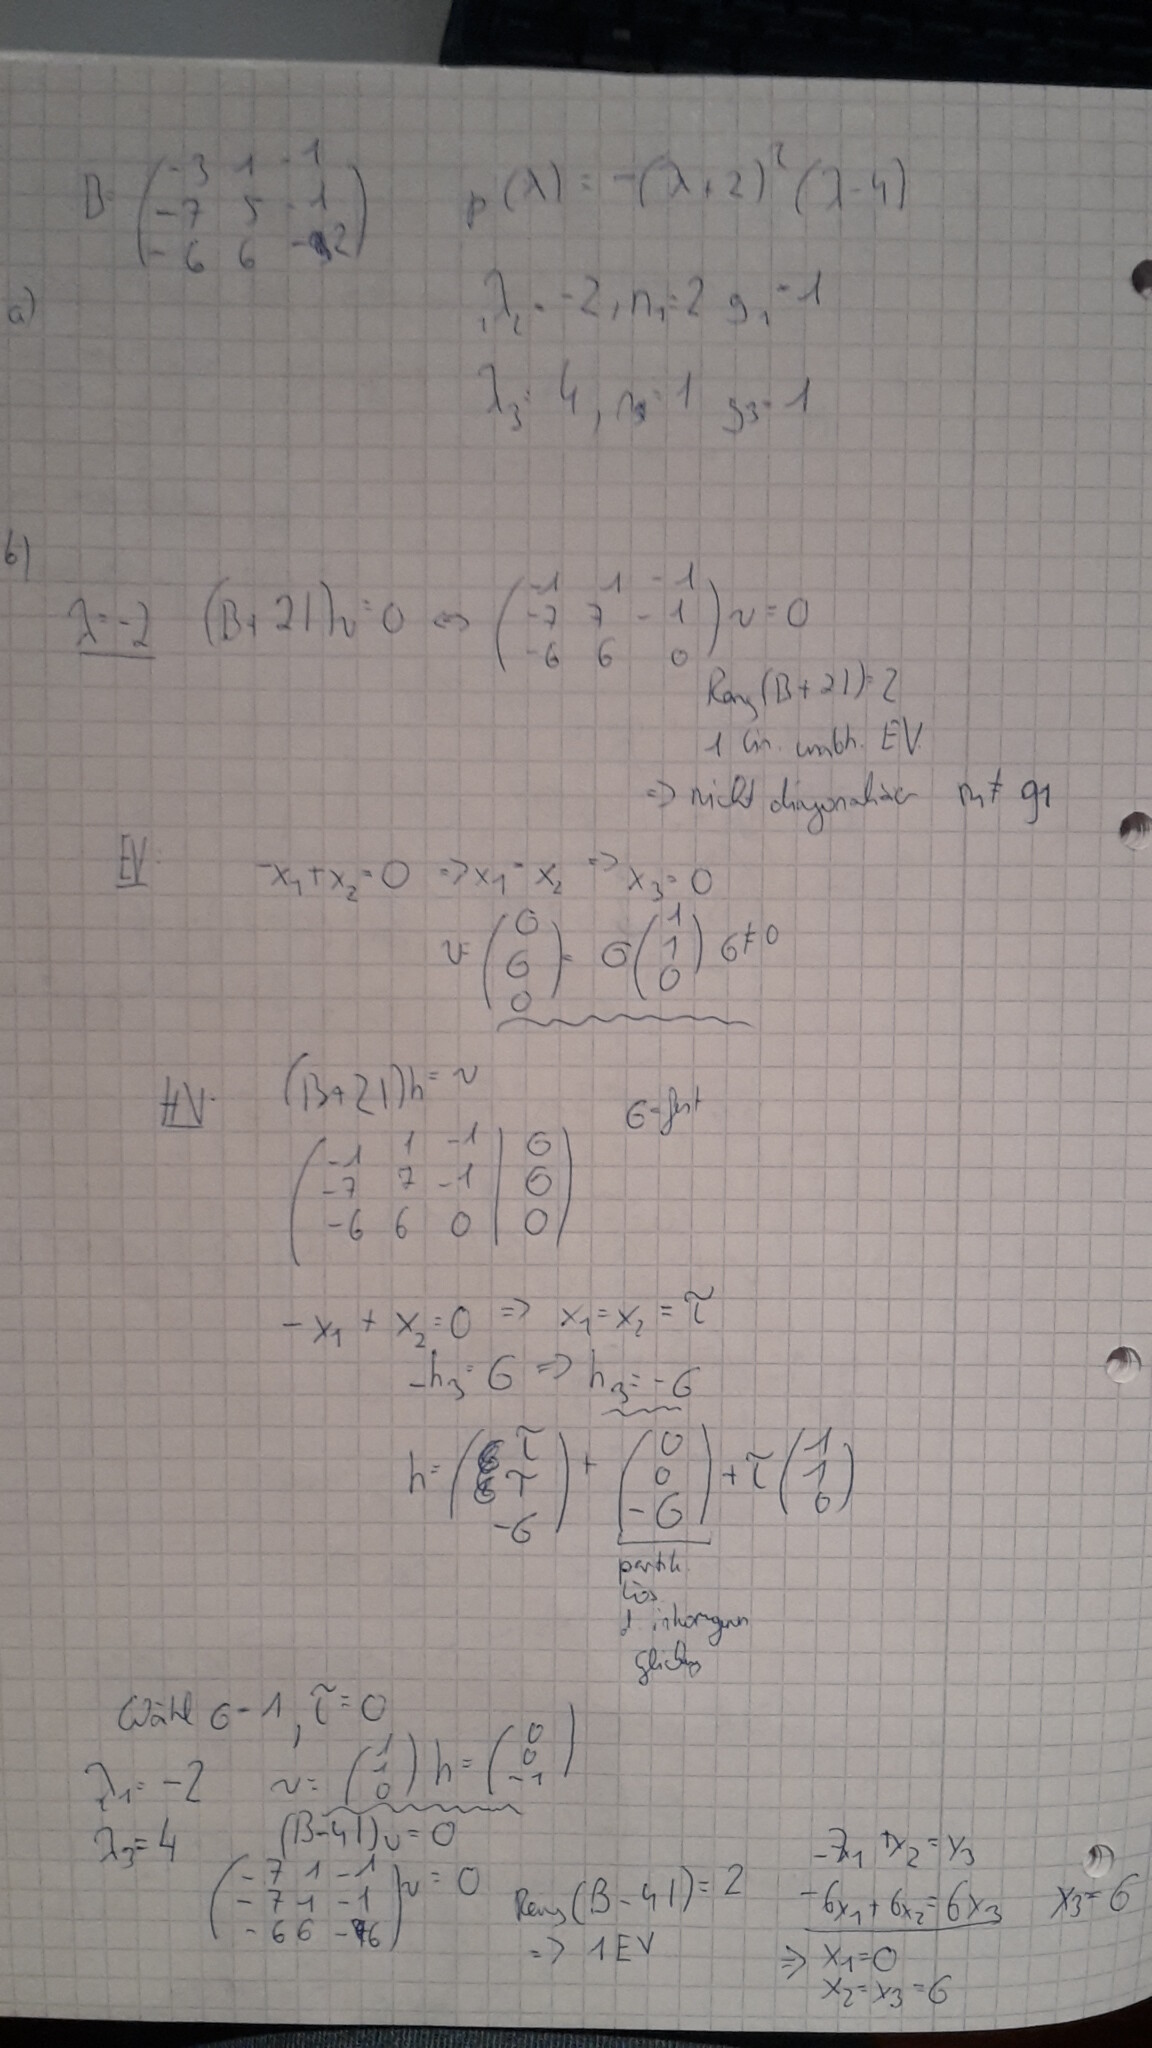 B = ( -3 1 -1 ; -7 5 -1 ; -6 6 -2 )
p(λ) = -(λ+2)² (λ-4)
a)
λ₂ = -2, n₁=2 g₁=1
λ₃ = 4, n₃=1 g₃=1
b)
λ=-2 (B+2I)v=0 ⇔ ( -1 1 -1 ; -7 7 -1 ; -6 6 0 ) v = 0
Rang(B+2I)=2
1 lin. unabh. EV.
=> nicht diagonalisier n₁≠ g1
EV: -x₁+x₂=0 => x₁=x₂ => x₃=0
v= ( σ ; σ ; 0 ) = σ ( 1 ; 1 ; 0 ) σ≠0
HV: (B+2I)h = v
σ-fest
( -1 1 -1 | σ ; -7 7 -1 | σ ; -6 6 0 | 0 )
-x₁ + x₂=0 => x₁=x₂=τ
-h₃=σ => h₃=-σ
h= ( τ ; τ ; -σ ) + ( 0 ; 0 ; -σ ) + τ ( 1 ; 1 ; 0 )
partik.
Lös
d inhomogen
Wähl σ=1, τ=0
λ₁=-2 v= ( 1 ; 1 ; 0 ) h= ( 0 ; 0 ; -1 )
λ₃=4 (B-4I)v=0
( -7 1 -1 ; -7 1 -1 ; -6 6 -6 ) v = 0
Rang(B-4I)=2
=> 1 EV
-7x₁ +x₂=x₃
-6x₁+6x₂=6x₃ x₃=σ
=> x₁=0
x₂=x₃=σ